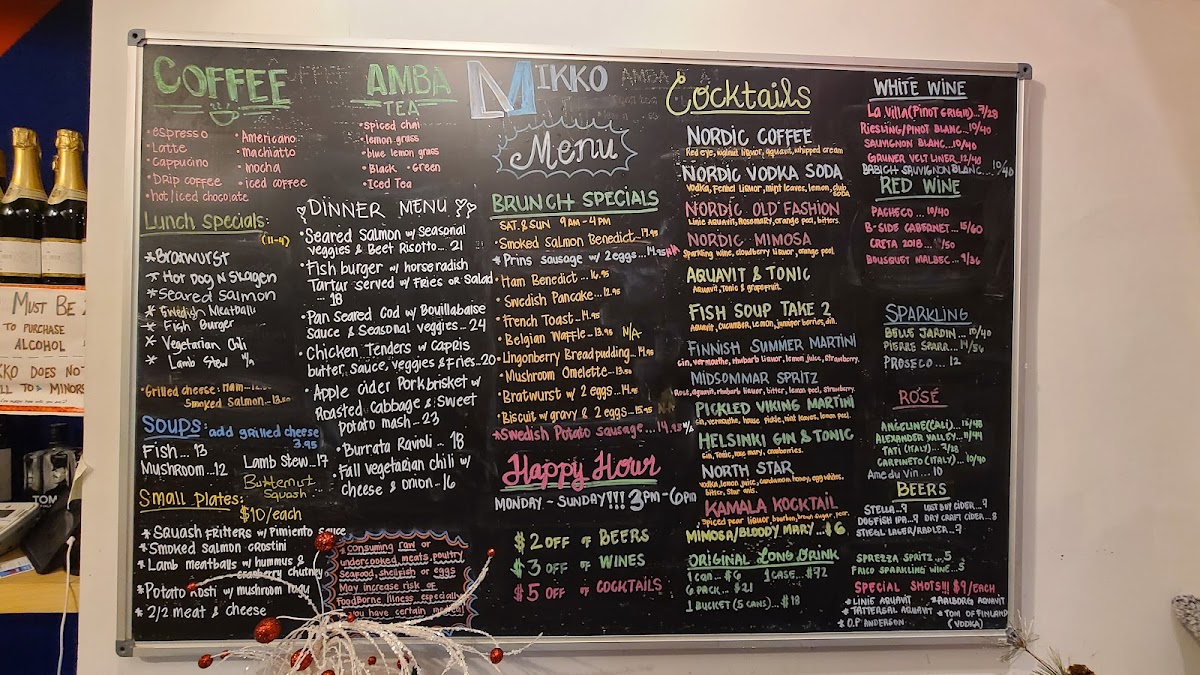 COFFEE
• espresso
• Latte
• cappucino
• Drip coffee
• hot/iced chocolate
• Americano
• machiatto
• mocha
• iced coffee
AMBA
TEA
• spiced chai
• lemon grass
• blue lemon grass
• Black • Green
• Iced Tea
MIKKO
Menu
Lunch Specials:
(11-4)
* Bratwurst
* Hot Dog N Skagen
* Seared Salmon
* Swedish Meatball
* Fish Burger
* Vegetarian Chili
* Lamb Stew N/A
• Grilled cheese: Ham...
Smoked Salmon...13.50
SOUPS: add grilled cheese
3.95
Fish... 13
Mushroom..12
Lamb Stew..17
Butternut
Squash
Small Plates:
$10/each
* Squash Fritters w/ Pimiento sauce
* Smoked salmon crostini
* Lamb meatballs w/ hummus &
cranberry chutney
* Potato rosti w/ mushroom ragu
* 2/2 meat & cheese
DINNER MENU
• Seared Salmon w/ Seasonal
veggies & Beet Risotto... 21
• Fish burger w/ horseradish
Tartar served w/ Fries or Salad
... 18
• Pan Seared Cod w/ Bouillabaise
Sauce & Seasonal veggies.. 24
• Chicken Tenders w/ Capris
butter, sauce, veggies & Fries..20
• Apple cider Pork brisket w/
Roasted cabbage & Sweet
potato mash.. 23
• Burrata Ravioli ... 18
• Fall vegetarian chili w/
cheese & onion.. 16
* consuming raw or
undercooked meats, poultry
Seafood, shellfish or eggs
May increase risk of
Foodborne illness, especially
you have certain
BRUNCH SPECIALS
SAT. & SUN 9AM - 4PM
• Smoked Salmon Benedict..17.95
* Prins sausage w/ 2 eggs...14.95 N/A
• Ham Benedict... 16.95
• Swedish Pancake...12.95
• French Toast...14.95
• Belgian Waffle...13.95 N/A
• Lingonberry Bread pudding...14.95
• Mushroom Omelette...13.50
• Bratwurst w/ 2 eggs...14.95
• Biscuit w/ gravy & 2 eggs...15.95
* Swedish Potato sausage...14.95 N/A
Happy Hour
MONDAY - SUNDAY!!! 3PM-6PM
$2 OFF OF BEERS
$3 OFF OF WINES
$5 OFF OF COCKTAILS
Cocktails
NORDIC COFFEE
Red eye, walnut liquor, aquavit, whipped cream
NORDIC VODKA SODA
Vodka, Fennel Liquor, mint leaves, lemon, club
SODA
NORDIC OLD FASHION
Linie Aquavit, Rosemary, orange peel, bitters.
NORDIC MIMOSA
Sparkling wine, cloudberry liquor, orange peel
AQUAVIT & TONIC
Aquavit, Tonic & grapefruit.
FISH SOUP TAKE 2
Aquavit, cucumber, lemon, juniper berries, dill.
FINNISH SUMMER MARTINI
Gin, vermouthe, rhubarb liquor, lemon juice, strawberry.
MIDSOMMAR SPRITZ
Rosé, aquavit, rhubarb liqueur, bitter, lemon peel, strawberry.
PICKLED VIKING MARTINI
Gin, vermouthe, house pickle, mint leaves, lemon peel.
HELSINKI GIN & TONIC
Gin, Tonic, rose mary, cranberries.
NORTH STAR
vodka, lemon juice, cardamon honey, egg whites,
bitter, star anis.
KAMALA KOCKTAIL
Spiced pear liquor, bourbon, brown sugar, pear.
MIMOSA/BLOODY MARY...$6
ORIGINAL LONG DRINK
1 can... $6 1 CASE...$72
6 PACK... $21
1 BUCKET (5 CANS)...$18
WHITE WINE
La Villa (PINOT GRIGIO)...7/28
RIESLING/PINOT BLANC...10/40
SAUVIGNON BLANC...10/40
GRUNER VELT LINER..12/40
BABICH SAUVIGNON BLANC... 10/40
RED WINE
PACHECO ... 10/40
B-SIDE CABERNET...15/60
CRETA 2018 ... /50
BOUSQUET MALBEC...9/36
SPARKLING
BELLE JARDIN...10/40
PIERRE SPARR...14/56
PROSECO... 12
ROSÉ
ANGELINE (CALI)...
ALEXANDER VALLEY...11/44
TATI (ITALY)...7/28
CARPINETO (ITALY)...10/40
Ame du Vin... 10
BEERS
STELLA...9 LOST BUOY CIDER...9
DOGFISH IPA..9 DRY CRAFT CIDER..8
STIEGL LAGER/RADLER..9
SPREZZA SPRITZ...5
FACO SPARKLING WINE..5
SPECIAL SHOTS!!! $9/EACH
* LINIE AQUAVIT * AALBORG AQUAVIT
* TATTERSAL AQUAVIT * TOM OF FINLAND
* O.P. ANDERSON (VODKA)
MUST BE
TO PURCHASE
ALCOHOL
DOES NO
TO MINORS
TOM